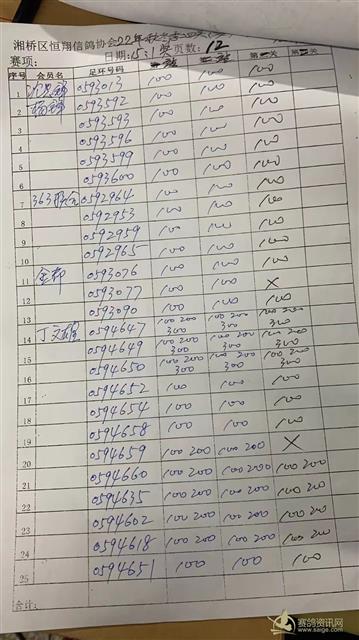 湘桥区恒翔信鸽协会22年秋冬季四关
赛项: 日期:15:1 奖页数:12
序号 会员名 足环号码 第一关 第二关
1 0593013 100 100 100
2 0593592 100 100 100
3 0593593 100 100 100
4 0593596 100 100 100
5 0593599 100 100 100
6 0593600 100 100 100
7 363 0592964 100 100 100
8 0592953 100 100 100
9 0592959 100 100 100
10 0592965 100 100 100
11 0593076 100 100 100
12 0593077 100 100 ×
13 0593090 100 100 100
14 丁文 0594647 100 200 300 100 200 300 100 200 300
15 0594649 100 200 300 100 200 300 100 200 300
16 0594650 100 200 300 100 200 300 100 200 300
17 0594652 100 100 100
18 0594654 100 100 100
19 0594658 100 100 100
20 0594659 100 200 100 200 ×
21 0594660 100 200 100 200 100 200
22 0594635 100 200 100 200 100 200
23 0594602 100 200 100 200 100 200
24 0594618 100 200 100 200 100 200
25 0594651 100 100 100
合计:
赛鸽资讯网
www.saige.com